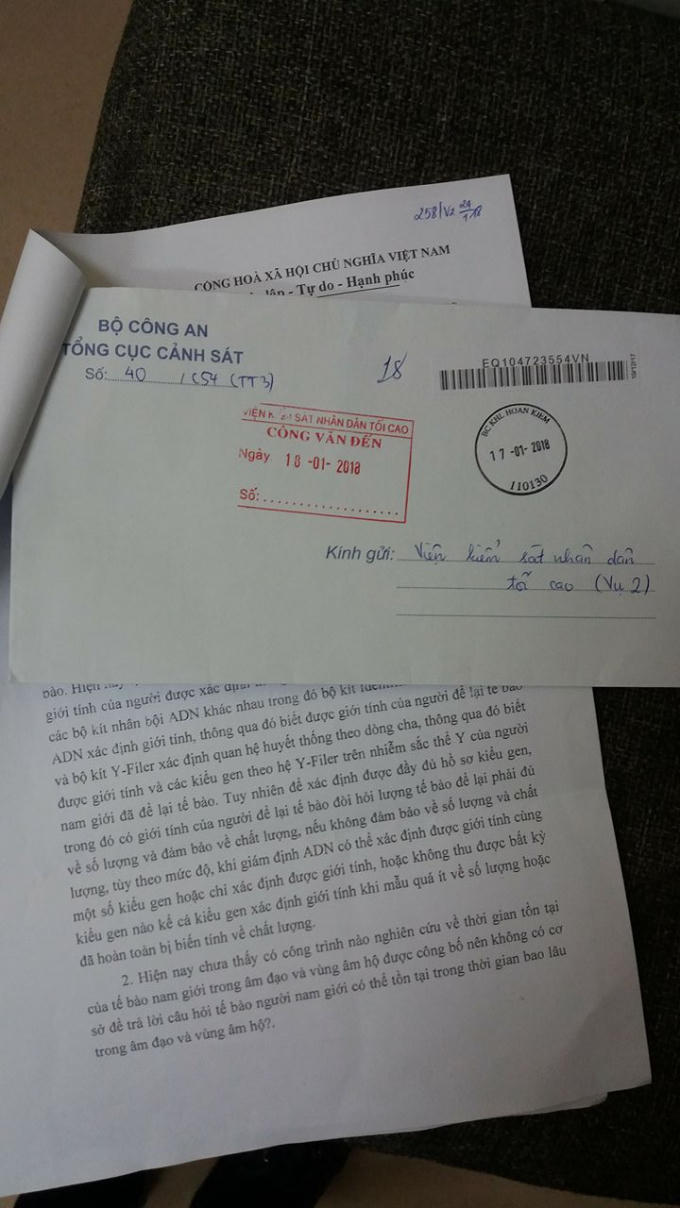 258/V2 29/1/18
CỘNG HOÀ XÃ HỘI CHỦ NGHĨA VIỆT NAM
- Tự do - Hạnh phúc
BỘ CÔNG AN
TỔNG CỤC CẢNH SÁT
Số: 40 /C54 (TT3)
18
EQ104723554VN
19/12/17
VIỆN SÁT NHÂN DÂN TỐI CAO
CÔNG VĂN ĐẾN
Ngày 18 -01- 2018
Số:
BC KHL HOAN KIEM
17 -01- 2018
110130
Kính gửi: Viện kiểm sát nhân dân
tối cao (Vụ 2)
bào. Hiện nay
giới tính của người được xác định
các bộ kít nhân bội ADN khác nhau trong đó bộ kít
ADN xác định giới tính, thông qua đó biết được giới tính của người để lại tế bào
và bộ kít Y-Filer xác định quan hệ huyết thống theo dòng cha, thông qua đó biết
được giới tính và các kiểu gen theo hệ Y-Filer trên nhiễm sắc thể Y của người
nam giới đã để lại tế bào. Tuy nhiên để xác định được đầy đủ hồ sơ kiểu gen,
trong đó có giới tính của người để lại tế bào đòi hỏi lượng tế bào để lại phải đủ
về số lượng và đảm bảo về chất lượng, nếu không đảm bảo về số lượng và chất
lượng, tùy theo mức độ, khi giám định ADN có thể xác định được giới tính cùng
một số kiểu gen hoặc chỉ xác định được giới tính, hoặc không thu được bất kỳ
kiểu gen nào kể cả kiểu gen xác định giới tính khi mẫu quá ít về số lượng hoặc
đã hoàn toàn bị biến tính về chất lượng.
2. Hiện nay chưa thấy có công trình nào nghiên cứu về thời gian tồn tại
của tế bào nam giới trong âm đạo và vùng âm hộ được công bố nên không có cơ
sở để trả lời câu hỏi tế bào người nam giới có thể tồn tại trong thời gian bao lâu
trong âm đạo và vùng âm hộ?.